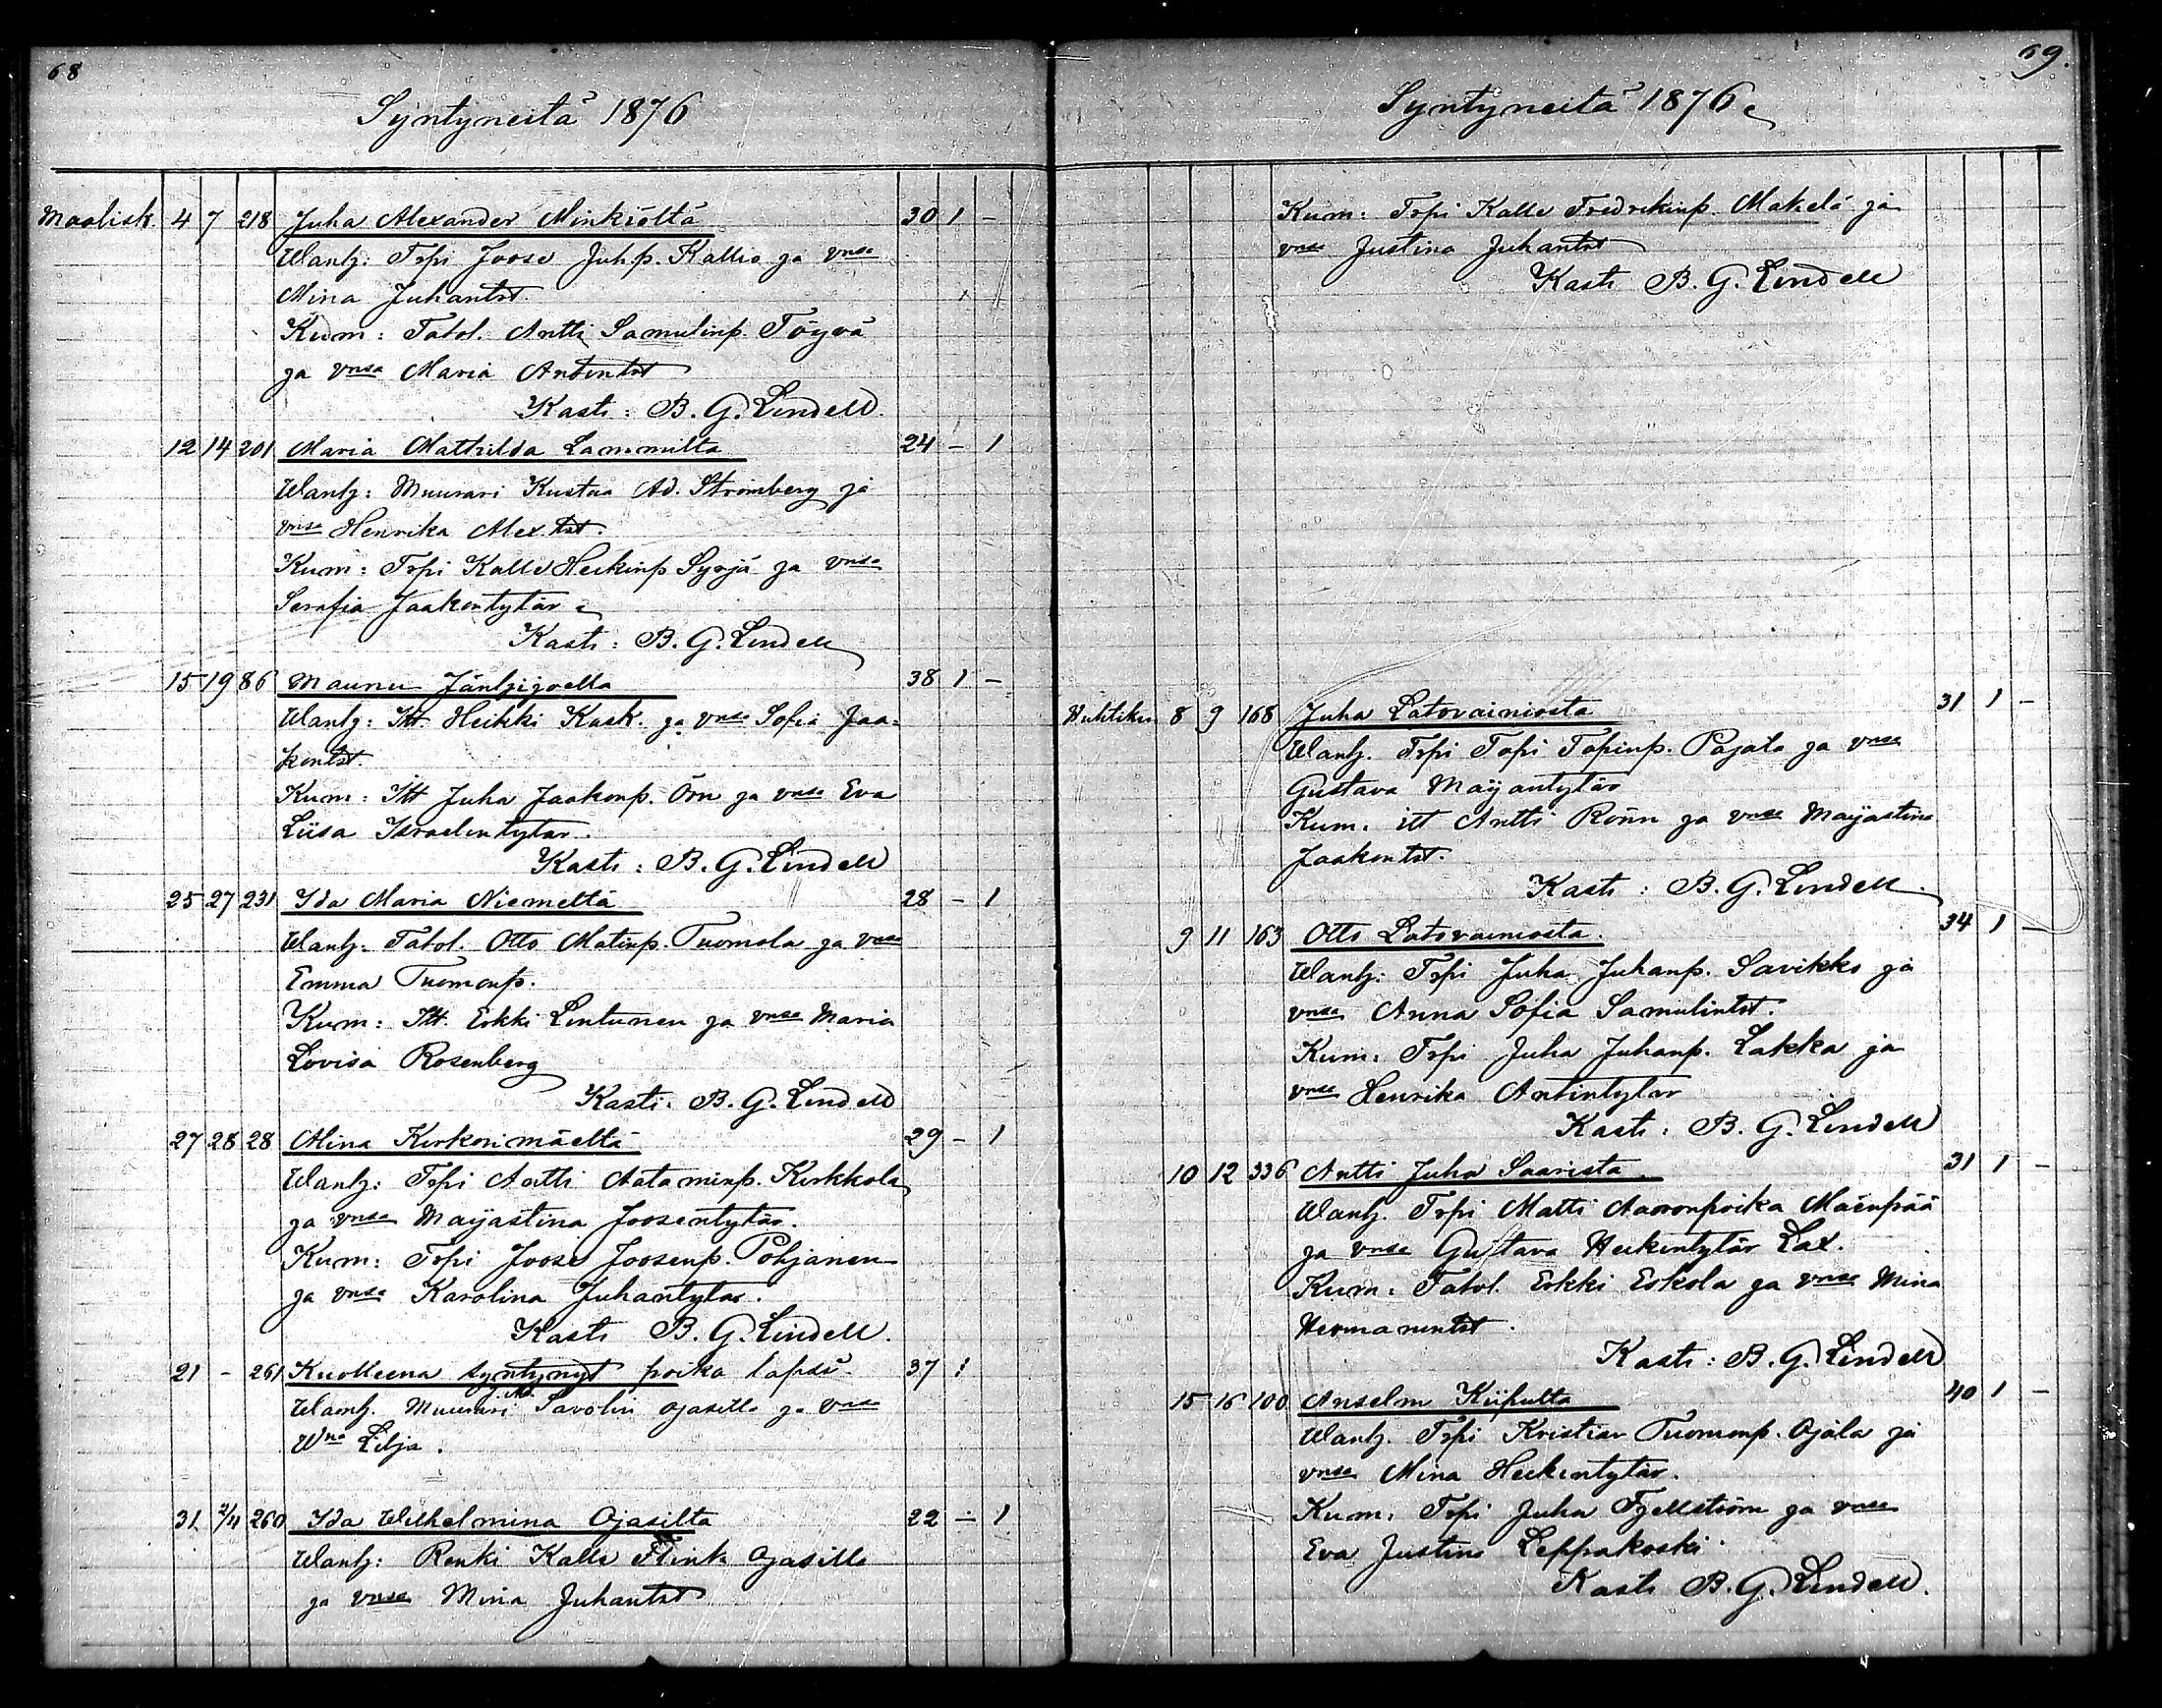 68
Syntyneitä 1876
Maalisk. 4 7 218 Juha Alexander Minkiöltä 30 1 –
Wanh: Trpi Joose Juhp. Kallio ja vnsa
Mina Juhantrt.
Kum: Tatol. Antti Samulinp. Töyvä
ja vnsa Maria Antintrt
Kasti: B. G. Lindell.
12 14 201 Maria Mathilda Lammilta 24 – 1
Wanh: Muurari Kustaa Ad. Strömberg ja
vnsa Henrika Alex.trt.
Kum: Trpi Kalle Heikinp Syrjä ja vnsa
Serafia Jaakontytär
Kasti: B. G. Lindell
15 19 86 Maunu Jäntzijoella 38 1 –
Wanh: Itt. Heikki Kask. ja vnsa Sofia Jaa-
kontrt.
Kum: Itt Juha Jaakonp. Örn ja vnsa Eva
Liisa Israelintytär.
Kasti: B. G. Lindell
25 27 231 Ida Maria Niemeltä 28 – 1
Wanh: Tatol. Otto Matinp. Tuomola ja vnsa
Emma Tuomonp.
Kum: Itt. Erkki Lintunen ja vnsa Maria
Lovisa Rosenberg
Kasti: B. G. Lindell
27 28 28 Mina Kirkonmäeltä 29 – 1
Wanh: Trpi Antti Aataminp. Kirkkola
ja vnsa Mayastina Joosentytär.
Kum: Trpi Joose Joosenp. Pohjanen
ja vnsa Karolina Juhantytär.
Kasti B. G. Lindell.
21 – 261 Kuolleena syntynyt poika lapsi 37 1
Wanh. Muurari Savolin Ojasilla ja vnsa
Wna Lilja.
31 2/4 260 Ida Wilhelmina Ojasilta 22 – 1
Wanh: Renki Kalle Flink Ojasilla
ja vnsa Mina Juhantrt
69.
Syntyneitä 1876
Kum: Trpi Kalle Fredrikinp. Mäkelä ja
vnsa Justina Juhantrt
Kasti B. G. Lindell
Huhtiku 8 9 168 Juha Latovainiosta 31 1 –
Wanh. Trpi Topi Topinp. Pajala ja vnsa
Gustava Mayantytär
Kum. itt Antti Rönn ja vnsa Mayastina
Jaakontrt.
Kasti: B. G. Lindell.
9 11 163 Otto Latovainiosta. 34 1 –
Wanh: Trpi Juha Juhanp. Savikko ja
vnsa Anna Sofia Samulintrt.
Kum: Trpi Juha Juhanp. Lakka ja
vnsa Henrika Antintytär
Kasti: B. G. Lindell
10 12 336 Antti Juha Saarista. 31 1 –
Wanh. Trpi Matti Aaronpoika Mäenpää
ja vnsa Gustava Heikintytär Lax.
Kum: Tatol. Erkki Eskola ja vnsa Mina
Hermanintrt.
Kasti: B. G. Lindell
15 16 100 Anselm Kiipulta 40 1 –
Wanh. Trpi Kristian Tuomonp. Ojala ja
vnsa Mina Heikintytär.
Kum. Trpi Juha Fjellström ja vnsa
Eva Justina Leppäkoski.
Kasti B. G. Lindell.